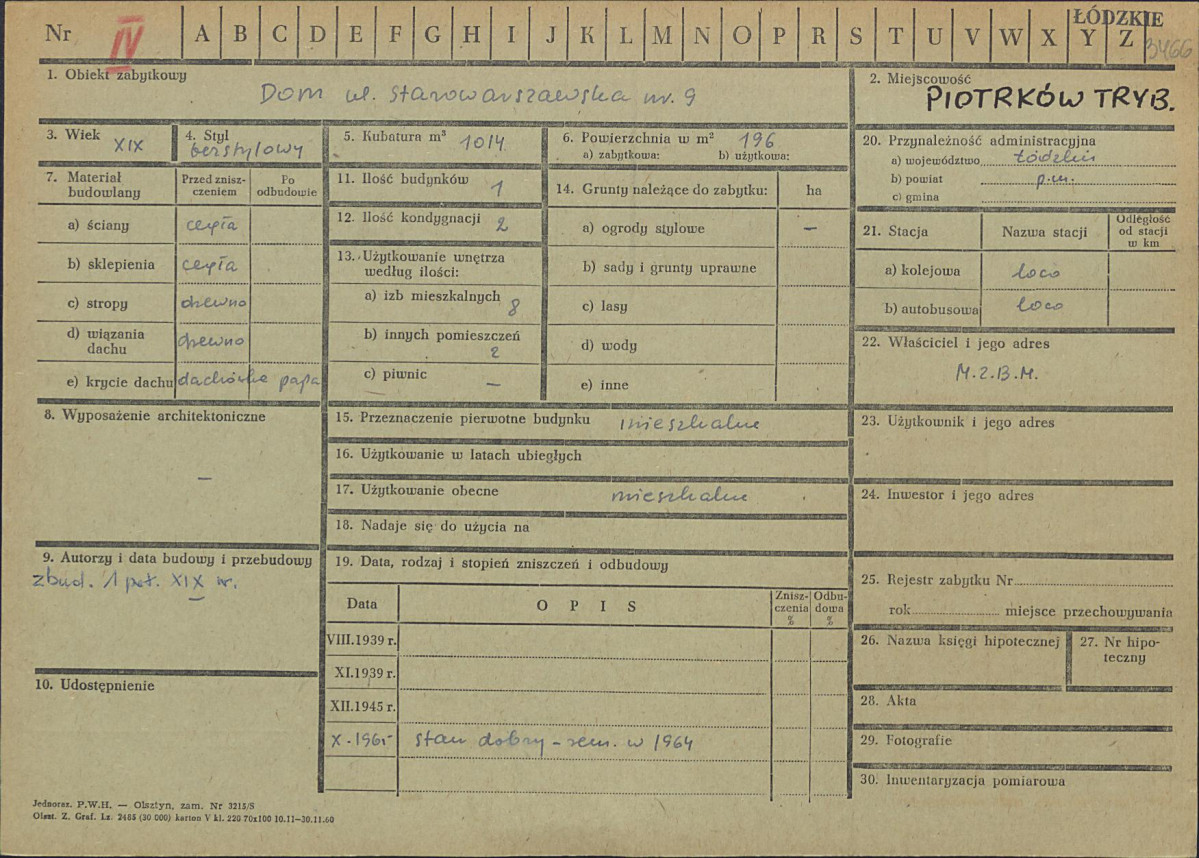 Nr IV A B C D E F G H I J K L M N O P R S T U V W X Y Z
ŁÓDZKIE
3466
1. Obiekt zabytkowy
Dom ul. Starowarszawska nr. 9
2. Miejscowość
PIOTRKÓW TRYB.
3. Wiek XIX
4. Styl
bezstylowy
5. Kubatura m³ 1014
6. Powierzchnia w m² 196
a) zabytkowa: b) użytkowa:
7. Materiał budowlany
Przed zniszczeniem
Po odbudowie
a) ściany cegła
b) sklepienia cegła
c) stropy drewno
d) wiązania dachu drewno
e) krycie dachu dachówka papa
8. Wyposażenie architektoniczne
—
9. Autorzy i data budowy i przebudowy
zbud. 1 poł. XIX w.
10. Udostępnienie
11. Ilość budynków 1
12. Ilość kondygnacji 2
13. Użytkowanie wnętrza
według ilości:
a) izb mieszkalnych 8
b) innych pomieszczeń
2
c) piwnic —
14. Grunty należące do zabytku: ha
a) ogrody stylowe —
b) sady i grunty uprawne
c) lasy
d) wody
e) inne
15. Przeznaczenie pierwotne budynku mieszkalne
16. Użytkowanie w latach ubiegłych
17. Użytkowanie obecne mieszkalne
18. Nadaje się do użycia na
19. Data, rodzaj i stopień zniszczeń i odbudowy
Data OPIS Zniszczenia % Odbudowa %
VIII.1939 r.
XI.1939 r.
XII.1945 r.
X-1965 stan dobry – rem. w 1964
20. Przynależność administracyjna
a) województwo Łódzkie
b) powiat p.m.
c) gmina
21. Stacja Nazwa stacji Odległość od stacji w km
a) kolejowa loco
b) autobusowa loco
22. Właściciel i jego adres
M.Z.B.M.
23. Użytkownik i jego adres
24. Inwestor i jego adres
25. Rejestr zabytku Nr
rok miejsce przechowywania
26. Nazwa księgi hipotecznej
27. Nr hipoteczny
28. Akta
29. Fotografie
30. Inwentaryzacja pomiarowa
Jednoraz. P.W.H. — Olsztyn, zam. Nr 3215/S
Olszt. Z. Graf. Lz. 2485 (30 000) karton V kl. 220 70x100 10.11—30.11.60